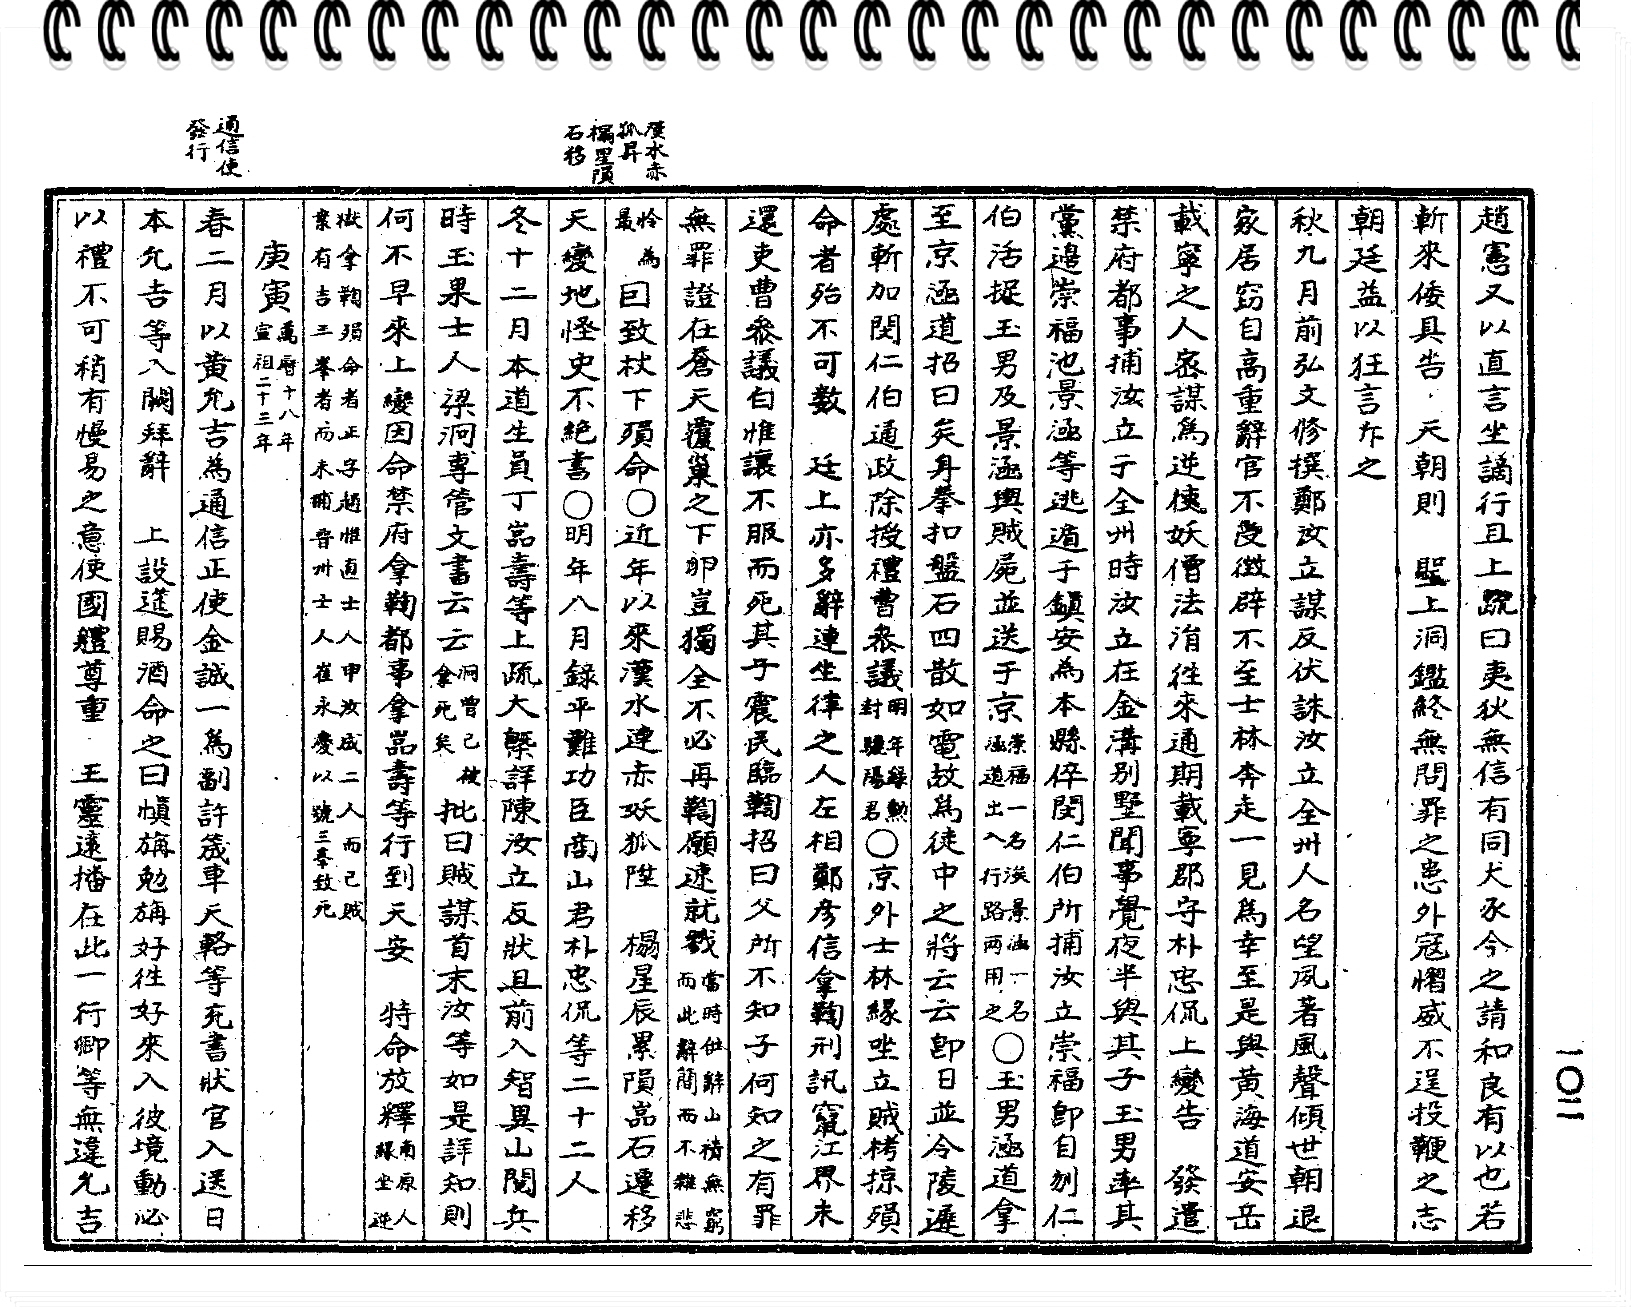 漢水赤
狐昇
榻星隕
石移
通信使
發行
趙憲又以直言坐謫行且上疏曰夷狄無信有同犬豕今之請和良有以也若
斬來倭具告天朝則聖上洞鑑終無問罪之患外寇慴威不逞投鞭之志
朝廷益以狂言斥之
秋九月前弘文修撰鄭汝立謀反伏誅汝立全州人名望夙著風聲傾世朝退
家居窃自高重辭官不受徵辟不至士林奔走一見為幸至是與黃海道安岳
載寧之人密謀為逆使妖僧法洧往來通期載寧郡守朴忠侃上變告發遣
禁府都事捕汝立于全州時汝立在金溝別墅聞事覺夜半與其子玉男率其
黨邊崇福池景涵等逃遁于鎮安為本縣倅閔仁伯所捕汝立崇福卽自刎仁
伯活捉玉男及景涵與賊屍並送于京崇福一名涘景涵一名涵道出入行路兩用之〇玉男涵道拿
至京涵道招曰矣身拳扣盤石四散如電故為徒中之將云云卽日並令陵遲
處斬加閔仁伯通政除授禮曹叅議明年錄勳封驪陽君〇京外士林緣坐立賊栲掠殞
命者殆不可數廷上亦多辭連坐律之人左相鄭彥信拿鞫刑訊竄江界未
還吏曹叅議白惟讓不服而死其子震民臨鞫招曰父所不知子何知之有罪
無罪證在蒼天覆巢之下卵豈獨全不必再鞫願速就戮當時供辭山積無窮而此辭簡而不雜悲
怜為最囙致杖下殞命〇近年以來漢水連赤妖狐陞榻星辰累隕嵓石遷移
天變地怪史不絕書〇明年八月錄平難功臣商山君朴忠侃等二十二人
冬十二月本道生員丁嵓壽等上疏大槩詳陳汝立反狀且前入智異山閱兵
時玉果士人梁泂專管文書云云泂曾已被拿死矣批曰賊謀首末汝等如是詳知則
何不早來上變因命禁府拿鞫都事拿嵓壽等行到天安特命放釋南原人緣坐逆
獄拿鞫殞命者正字趙惟直士人申汝成二人而已賊
衆有吉三峯者而未捕晋州士人崔永慶以號三峯致死
庚寅萬曆十八年宣祖二十三年
春二月以黃允吉為通信正使金誠一為副許筬車天輅等充書狀官入送日
本允吉等入闕拜辭上設進賜酒命之曰愼旃勉旃好徃好來入彼境動必
以禮不可稍有慢易之意使國軆尊重王靈遠播在此一行卿等無違允吉
一〇二